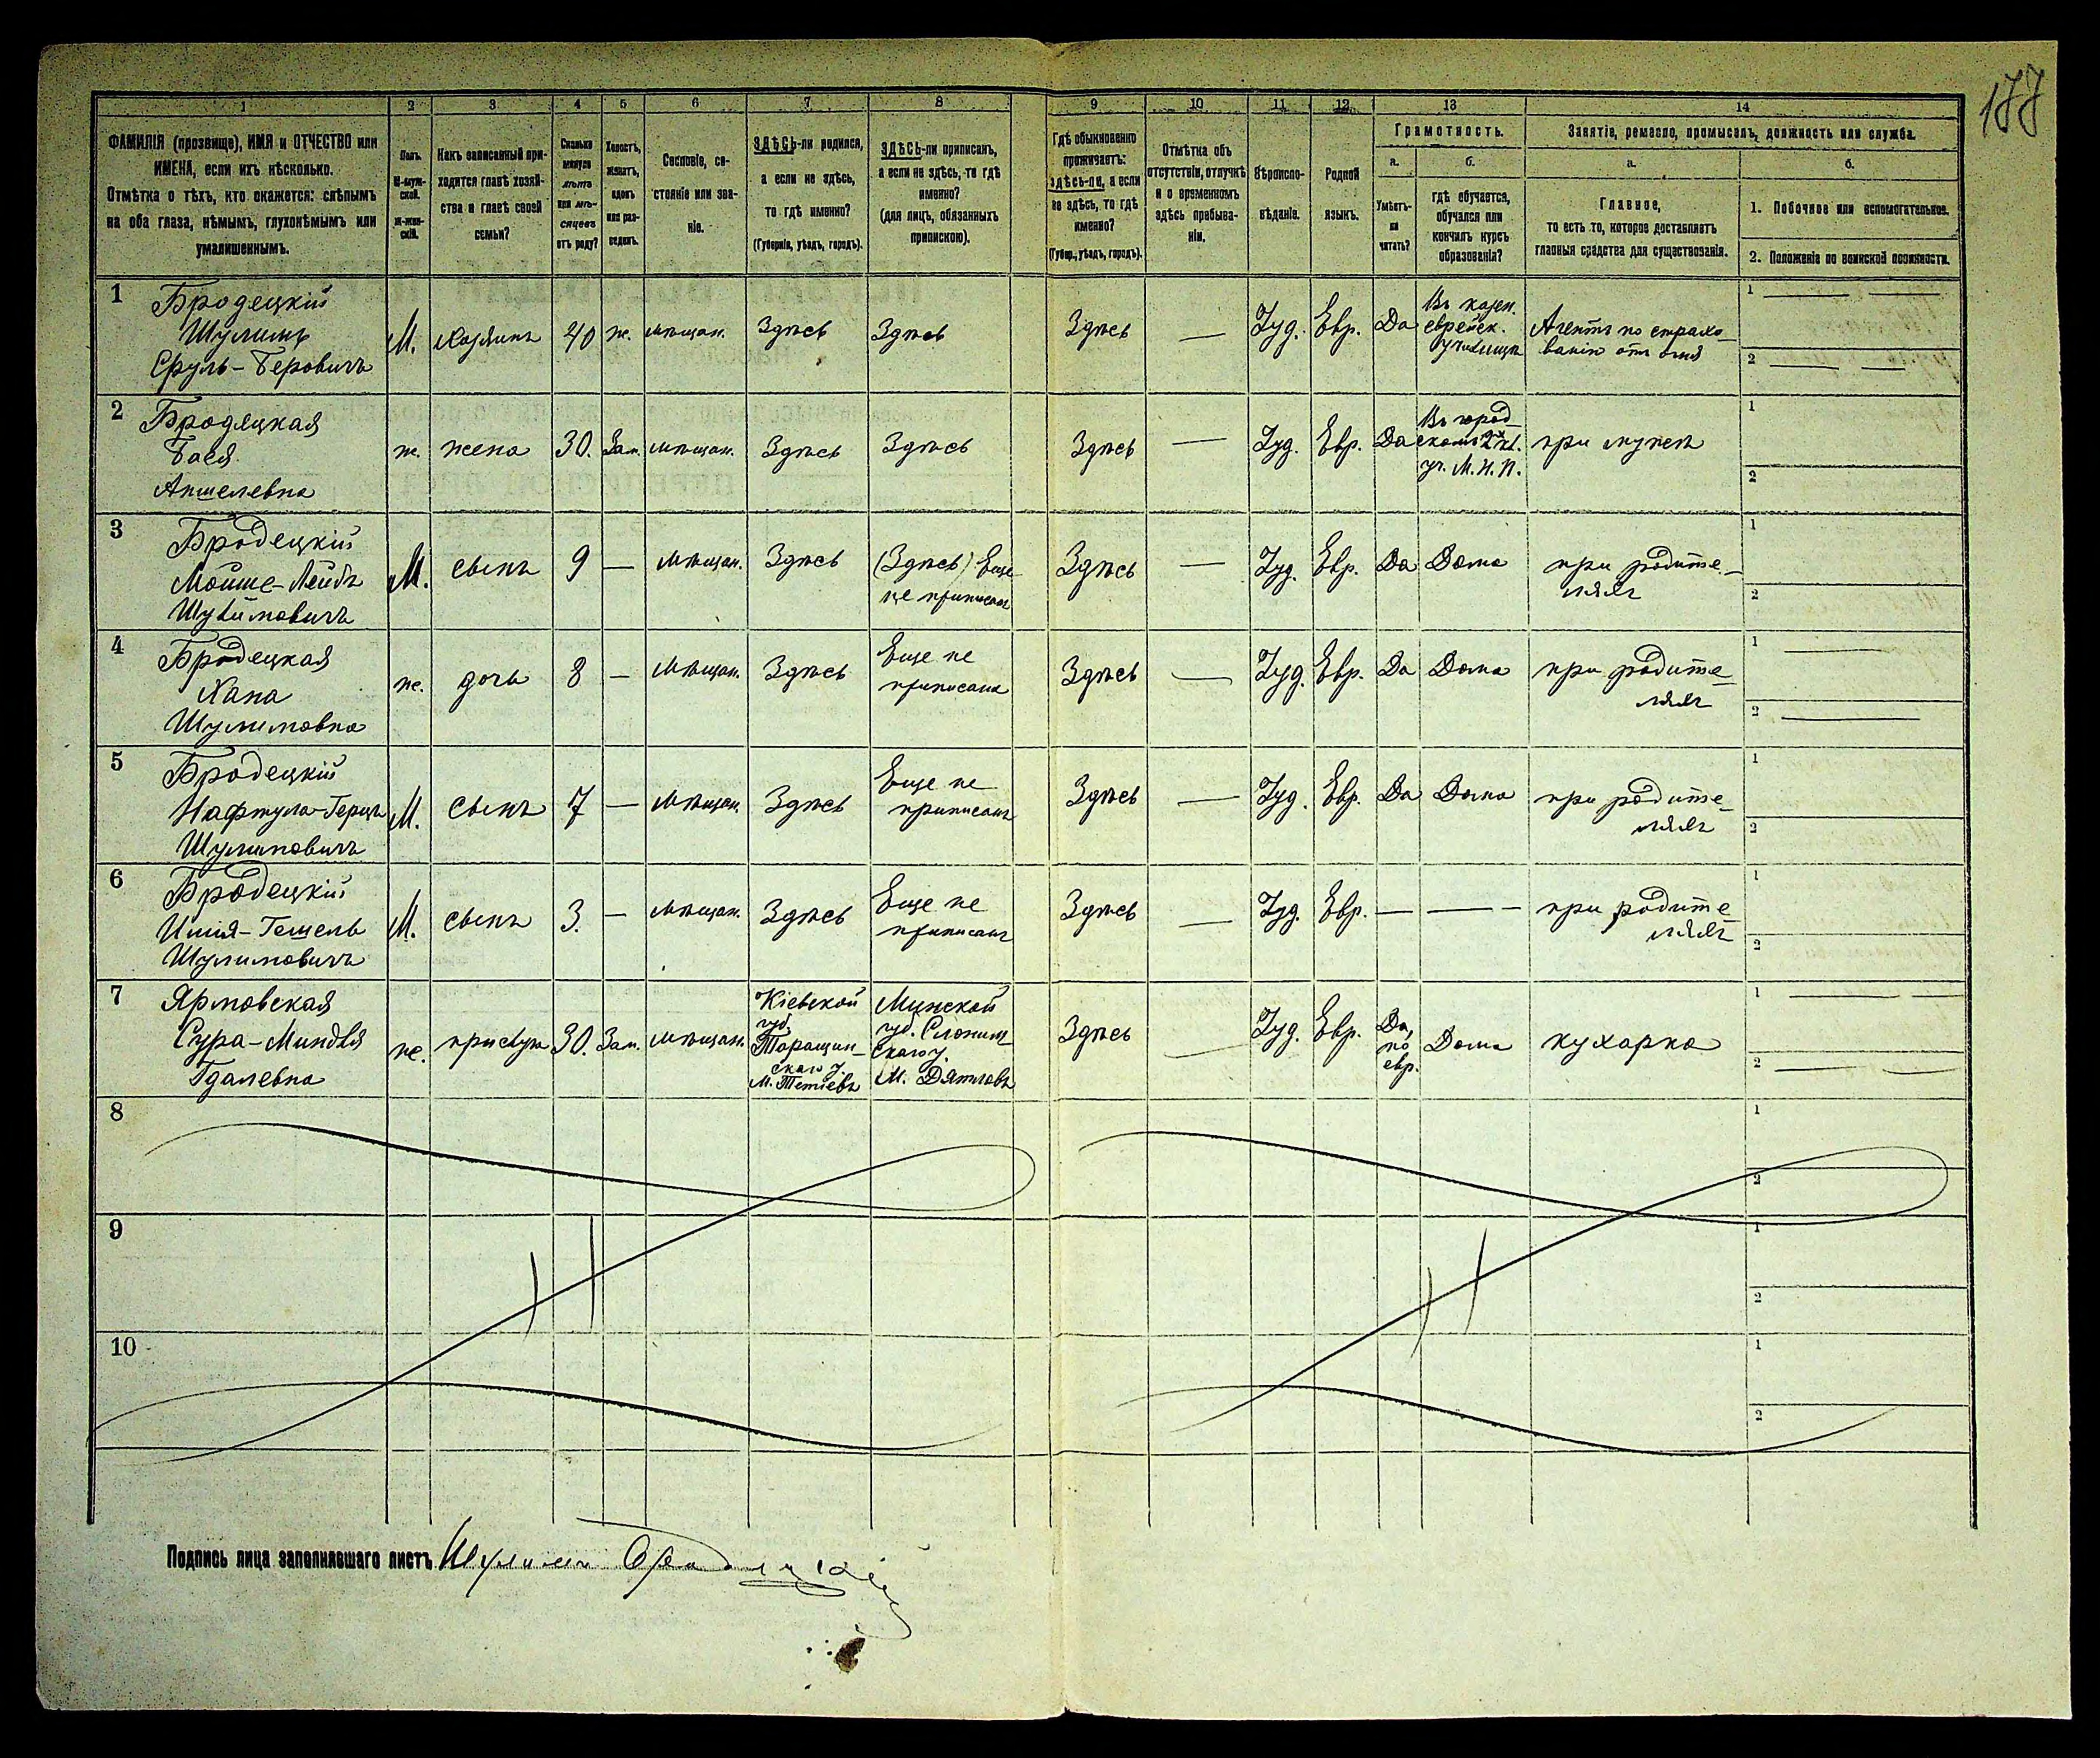 177
1 2 3 4 5 6 7 8 9 10 11 12 13 14
ФАМИЛІЯ (прозвище), ИМЯ и ОТЧЕСТВО или
ИМЕНА, если ихъ нѣсколько.
Отмѣтка о тѣхъ, кто окажется: слѣпымъ
на оба глаза, нѣмымъ, глухонѣмымъ или
умалишеннымъ.
Полъ.
М-муж-
ской.
Ж-жен-
скій.
Какъ записанный при-
ходится главѣ хозяй-
ства и главѣ своей
семьи?
Сколько
минуло
лѣтъ
или мѣ-
сяцевъ
отъ роду?
Холостъ,
женатъ,
вдовъ
или раз-
веденъ.
Сословіе, со-
стояніе или зва-
ніе.
ЗДѢСЬ-ли родился,
а если не здѣсь,
то гдѣ именно?
(Губернія, уѣздъ, городъ).
ЗДѢСЬ-ли приписанъ,
а если не здѣсь, то гдѣ
именно?
(для лицъ, обязанныхъ
припискою).
Гдѣ обыкновенно
проживаетъ:
здѣсь-ли, а если
не здѣсь, то гдѣ
именно?
(Губер., уѣздъ, городъ).
Отмѣтка объ
отсутствіи, отлучкѣ
и о временномъ
здѣсь пребыва-
ніи.
Вѣроиспо-
вѣданіе.
Родной
языкъ.
Грамотность.
а.
Умѣетъ-
ли
читать?
б.
гдѣ обучается,
обучался или
кончилъ курсъ
образованія?
Занятіе, ремесло, промыселъ, должность или служба.
а.
Главное,
то есть то, которое доставляетъ
главныя средства для существованія.
б.
1. Побочное или вспомогательное.
2. Положеніе по воинской повинности.
1 Бродецкій
Шулимъ
Сруль-Беровичъ
М. хозяинъ 40 ж. мѣщан. Здѣсь Здѣсь Здѣсь — Іуд. Евр. Да
Въ казен.
еврейск.
училищѣ
Агентъ по страхо-
ванію отъ огня
1 — —
2 — —
2 Бродецкая
Бася
Аншелевна
ж. жена 30. Зам. мѣщан. Здѣсь Здѣсь Здѣсь — Іуд. Евр. Да
Въ город-
скомъ 2хкл.
уч. М. Н. П.
при мужѣ
1
2
3 Бродецкій
Мойше-Лейбъ
Шулимовичъ
М. сынъ 9 — мѣщан. Здѣсь (Здѣсь) Еще
не приписанъ
Здѣсь — Іуд. Евр. Да Дома при родите-
ляхъ
1
2
4 Бродецкая
Хана
Шулимовна
ж. дочь 8 — мѣщан. Здѣсь Еще не
приписана
Здѣсь — Іуд. Евр. Да Дома при родите-
ляхъ
1 —
2 —
5 Бродецкій
Нафтула-Герцъ
Шулимовичъ
М. сынъ 7 — мѣщан. Здѣсь Еще не
приписанъ
Здѣсь — Іуд. Евр. Да Дома при родите-
ляхъ
1
2
6 Бродецкій
Гешель
Шулимовичъ
М. сынъ 3. — мѣщан. Здѣсь Еще не
приписанъ
Здѣсь — Іуд. Евр. — — — при родите-
ляхъ
1
2
7 Ярмовская
Сура-Миндля
Гдалевна
ж. прислуга 30. Зам. мѣщан.
Кіевской
губ.
Таращан-
скаго у.
М. Тетіевъ
Минской
губ. Слоним-
скаго у.
М. Дятловъ
Здѣсь — Іуд. Евр.
Да,
по
евр.
Дома кухарка
1 — —
2 — —
8
1
2
9
1
2
10
1
2
Подпись лица заполнявшаго листъ Шулимъ Бродецкій